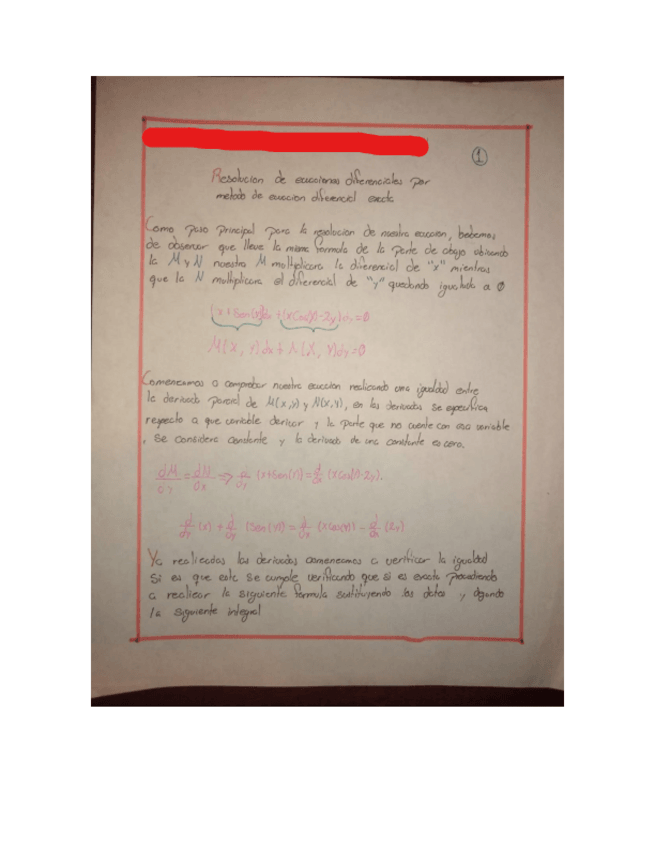 1
Resolucion de ecuaciones diferenciales por
metodo de ecuacion diferencial exacta
Como paso principal para la resolocion de nuestra ecucion, bebemos
de observar que lleve la misma formula de la parte de abajo ubicando
la M y N nuestra M moltiplicara la diferencial de "x" mientras
que la N multiplicara el diferencial de "y" quedando igualada a 0
(x+Sen(y))dx+(xCos(y)-2y)dy=0
M(x, y)dx+N(x, y)dy=0
Comenzamos a comprobar nuestra ecuacion realizando una igualdad entre
la derivada parcial de M(x,y) y N(x,y), en las derivadas se especifica
respecto a que variable derivar y la parte que no cuente con esa variable
, se considera constante y la derivada de una constante es cero.
dM/dy = dN/dx ⇒ d/dy (x+Sen(y))= d/dx (xCos(y)-2y).
d/dy (x) + d/dy (Sen(y)) = d/dx (xCos(y)) - d/dx (2y)
Ya realizadas las derivadas comenzamos a verificar la igualdad
Si es que este se cumple verificando que si es exacta procediendo
a realizar la siguiente formula sustituyendo los datos y dejando
la siguiente integral